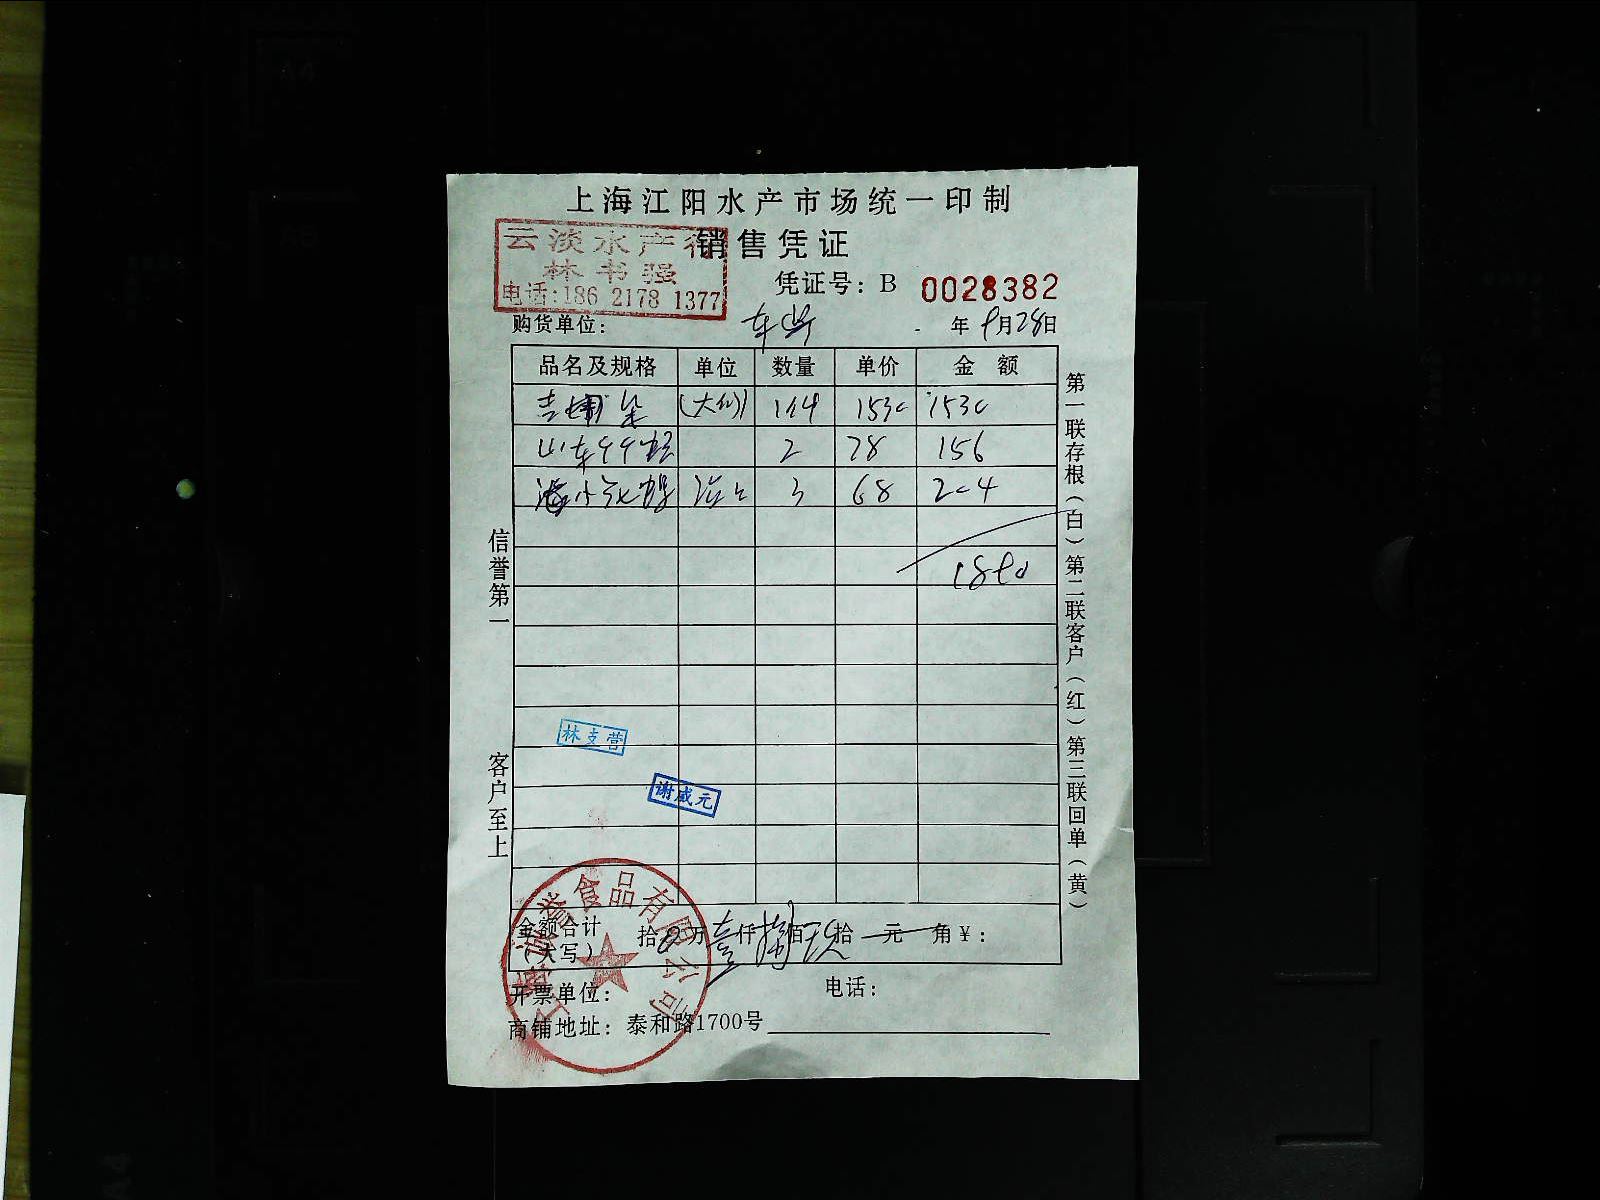 上海江阳水产市场统一印制
销售凭证
云淡水产行
林书强
电话:186 2178 1377
凭证号: B 0028382
购货单位: 年 9月28日
品名及规格 单位 数量 单价 金额
1530 1530
山东 2 78 156
3 68 204
信誉第一
客户至上
第一联存根(白)第二联客户(红)第三联回单(黄)
林支营
谢咸元
食品有限公司
金额合计(大写) 拾 万 壹 仟 捌 佰 玖 拾 元 角 ¥:
开票单位: 电话:
商铺地址: 泰和路1700号